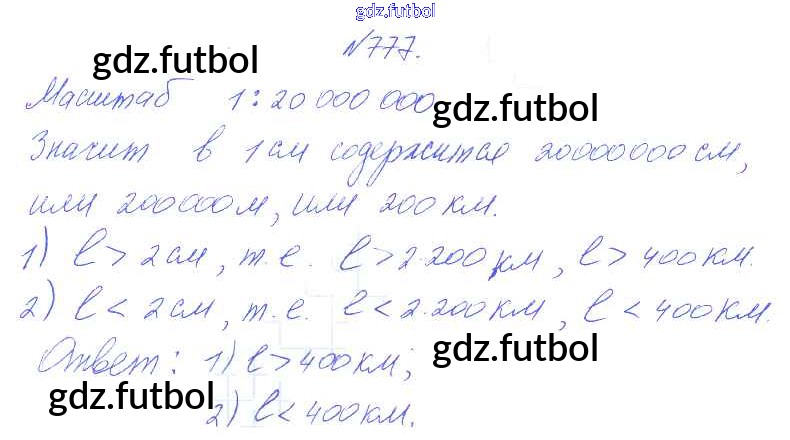 gdz.futbol
№777.
gdz.futbol
Масштаб 1:20 000 000
gdz.futbol
Значит в 1 см содержится 20000000 см,
или 200000 м, или 200 км.
1) l > 2 см, т.е. l > 2·200 км, l > 400 км.
2) l < 2 см, т.е. l < 2·200 км, l < 400 км.
Ответ: 1) l > 400 км;
gdz.futbol
gdz.futbol
2) l < 400 км.